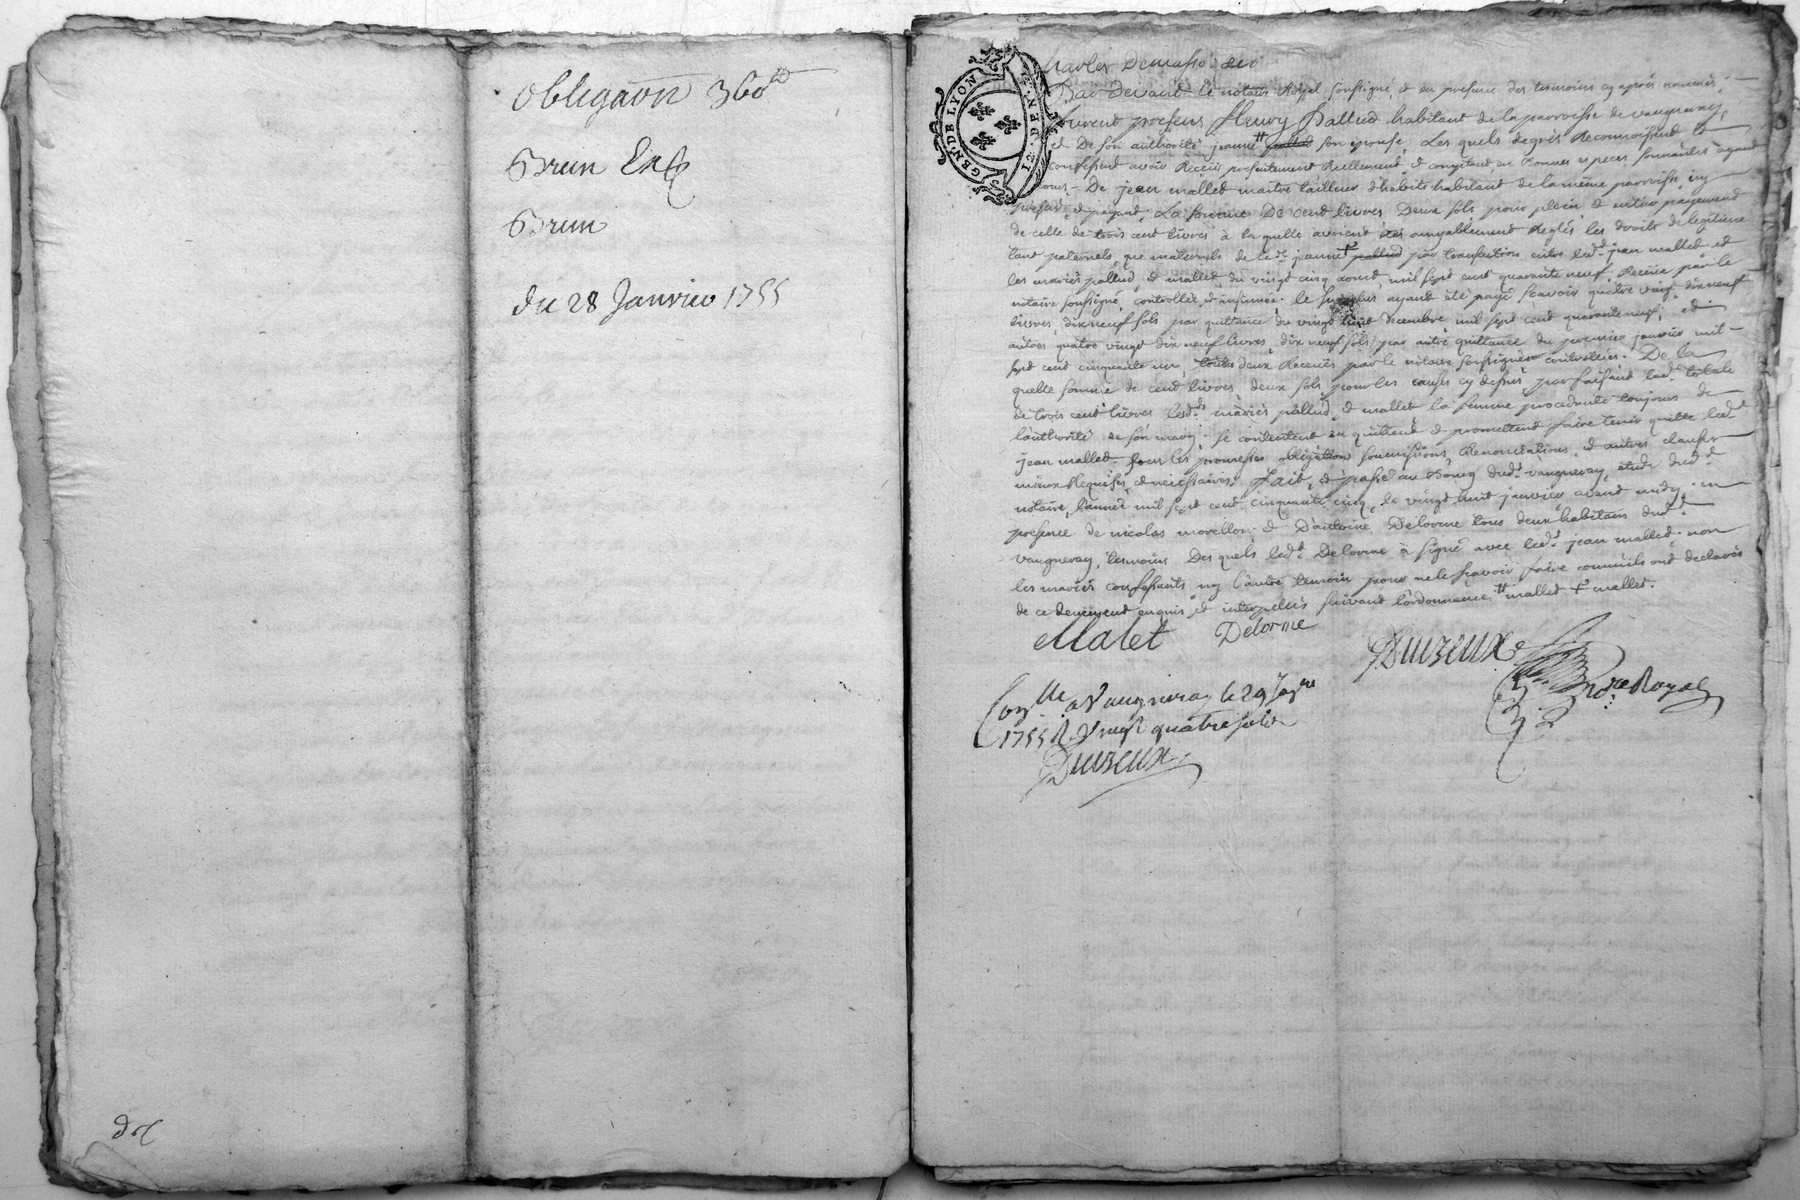 obligaon 360lt
Brun
Brun
du 28 Janvier 1755
GEN. DE LYON
Par devant le notaire Royal soussigné, et en presence des temoins cy apres nommés
furent presens fleury Pallud habitant de la parroisse de vaugneray,
et De son authorité jeanne # pallud son epouse, Les quels de gres Reconnoissent et
confessent avoir Receus presentement Reellement et comptant en Bonnes especes sonnantes ayant
cours De jean mallet maitre tailleur d'habits habitant de la même parroisse icy
present et payant, La somme De cent livres Deux sols pour plein et entier payement
de celle de trois cent livres a la quelle avoient étés amyablement Reglés les droits de legitime
tant paternels que maternels de lade jeanne + pallud par transaction entre led. jean mallet et
les mariés pallud et mallet du vingt cinq aoust mil sept cent quarante neuf Receüe par le
notaire soussigné, controllée et insinuée. le surplus ayant été payé scavoir quatre vingt dix neuf
livres dix neuf sols par quittance du vingt huit decembre mil sept cent quarante neuf, et
autres quatre vingt dix neuf livres dix neuf sols par autre quittance du premier janvier mil
sept cent cinquante un, toutes deux Receues par le notaire soussigné controllées. De la
quelle somme de cent livres deux sols pour les causes cy dessus parfaisant lad. totale
de trois cent livres lesd. mariés pallud et mallet la femme procedante toujours de
l'authorité de son mary se contentent en quittent et promettent faire tenir quitte led.
jean mallet sous les promesses obligation soumissions, Renonciations, et autres clauses
mieux Requises et necessaires. fait, et passé au Bourg dud. vaugneray, etude dud.
notaire, l'année mil sept cent cinquante cinq, le vingt huit janvier avant midy, en
presence de nicolas morellon et D'antoine Delorme tous deux habitans dud.
vaugneray, temoins Des quels led. Delorme a signé avec led. jean mallet non
les mariés confessants ny l'autre temoin pour ne le scavoir faire comme ils ont declarés
de ce deüement enquis et interpellés suivant l'ordonnance # mallet + mallet.
Malet Delorme
Duizeux
no.re Royal
Conlle a Vaugneray le 29 Janre
1755 R. Vingt quatre sols
Duizeux